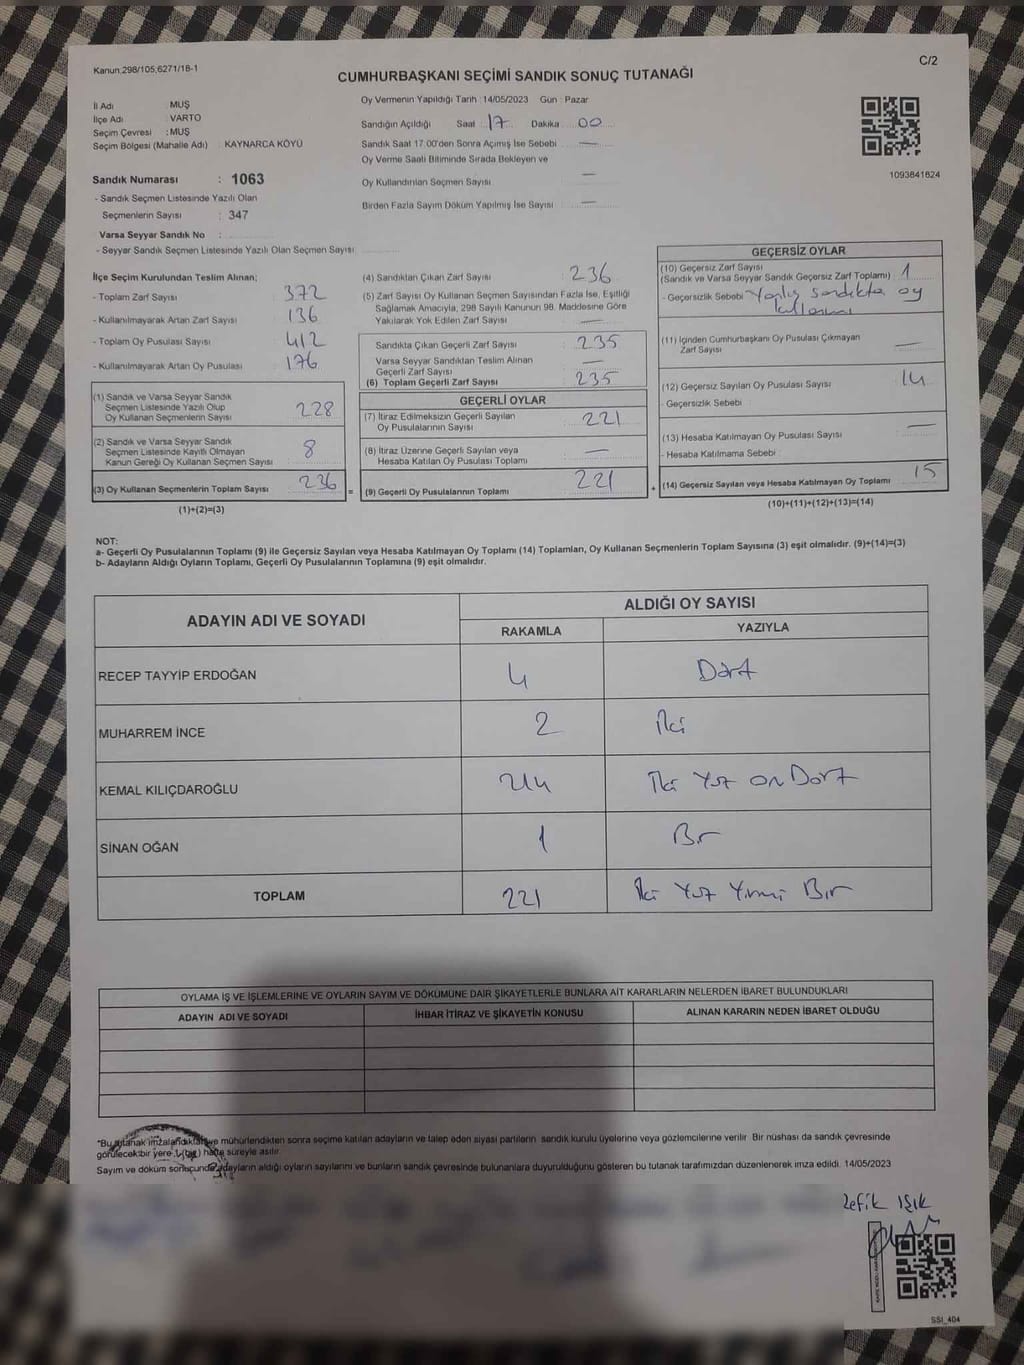 Kanun:298/105,6271/18-1
C/2
CUMHURBAŞKANI SEÇİMİ SANDIK SONUÇ TUTANAĞI
İl Adı : MUŞ
İlçe Adı : VARTO
Seçim Çevresi : MUŞ
Seçim Bölgesi (Mahalle Adı) : KAYNARCA KÖYÜ
Sandık Numarası : 1063
- Sandık Seçmen Listesinde Yazılı Olan
Seçmenlerin Sayısı : 347
Varsa Seyyar Sandık No :
- Seyyar Sandık Seçmen Listesinde Yazılı Olan Seçmen Sayısı
Oy Vermenin Yapıldığı Tarih : 14/05/2023 Gün : Pazar
Sandığın Açıldığı Saat 17 Dakika 00
Sandık Saat 17.00'den Sonra Açımış İse Sebebi —
Oy Verme Saati Bitiminde Sırada Bekleyen ve
Oy Kullandırılan Seçmen Sayısı —
Birden Fazla Sayım Döküm Yapılmış İse Sayısı —
1093841824
İlçe Seçim Kurulundan Teslim Alınan;
- Toplam Zarf Sayısı 372
- Kullanılmayarak Artan Zarf Sayısı 136
- Toplam Oy Pusulası Sayısı 412
- Kullanılmayarak Artan Oy Pusulası 176
(1) Sandık ve Varsa Seyyar Sandık
Seçmen Listesinde Yazılı Olup
Oy Kullanan Seçmenlerin Sayısı 228
(2) Sandık ve Varsa Seyyar Sandık
Seçmen Listesinde Kayıtlı Olmayan
Kanun Gereği Oy Kullanan Seçmen Sayısı 8
(3) Oy Kullanan Seçmenlerin Toplam Sayısı 236 =
(1)+(2)=(3)
(4) Sandıktan Çıkan Zarf Sayısı 236
(5) Zarf Sayısı Oy Kullanan Seçmen Sayısından Fazla İse, Eşitliği
Sağlamak Amacıyla, 298 Sayılı Kanunun 98. Maddesine Göre
Yakılarak Yok Edilen Zarf Sayısı —
Sandıkta Çıkan Geçerli Zarf Sayısı 235
Varsa Seyyar Sandıktan Teslim Alınan
Geçerli Zarf Sayısı —
(6) Toplam Geçerli Zarf Sayısı 235
GEÇERLİ OYLAR
(7) İtiraz Edilmeksizin Geçerli Sayılan
Oy Pusulalarının Sayısı 221
(8) İtiraz Üzerine Geçerli Sayılan veya
Hesaba Katılan Oy Pusulası Toplamı —
(9) Geçerli Oy Pusulalarının Toplamı 221 +
GEÇERSİZ OYLAR
(10) Geçersiz Zarf Sayısı
(Sandık ve Varsa Seyyar Sandık Geçersiz Zarf Toplamı) 1
- Geçersizlik Sebebi Yanlış sandıkta oy
(11) İçinden Cumhurbaşkanı Oy Pusulası Çıkmayan
Zarf Sayısı —
(12) Geçersiz Sayılan Oy Pusulası Sayısı 14
- Geçersizlik Sebebi :
(13) Hesaba Katılmayan Oy Pusulası Sayısı —
- Hesaba Katılmama Sebebi :
(14) Geçersiz Sayılan veya Hesaba Katılmayan Oy Toplamı 15
(10)+(11)+(12)+(13)=(14)
NOT:
a- Geçerli Oy Pusulalarının Toplamı (9) ile Geçersiz Sayılan veya Hesaba Katılmayan Oy Toplamı (14) Toplamları, Oy Kullanan Seçmenlerin Toplam Sayısına (3) eşit olmalıdır. (9)+(14)=(3)
b- Adayların Aldığı Oyların Toplamı, Geçerli Oy Pusulalarının Toplamına (9) eşit olmalıdır.
ADAYIN ADI VE SOYADI
ALDIĞI OY SAYISI
RAKAMLA YAZIYLA
RECEP TAYYİP ERDOĞAN 4 Dört
MUHARREM İNCE 2 İki
KEMAL KILIÇDAROĞLU 214 İki Yüz On Dört
SİNAN OĞAN 1 Bir
TOPLAM 221 İki Yüz Yirmi Bir
OYLAMA İŞ VE İŞLEMLERİNE VE OYLARIN SAYIM VE DÖKÜMÜNE DAİR ŞİKAYETLERLE BUNLARA AİT KARARLARIN NELERDEN İBARET BULUNDUKLARI
ADAYIN ADI VE SOYADI İHBAR İTİRAZ VE ŞİKAYETİN KONUSU ALINAN KARARIN NEDEN İBARET OLDUĞU
*Bu tutanak imzalandıktan ve mühürlendikten sonra seçime katılan adayların ve talep eden siyasi partilerin sandık kurulu üyelerine veya gözlemcilerine verilir. Bir nüshası da sandık çevresinde
görülecek bir yere 1 (bir) hafta süreyle asılır.
Sayım ve döküm sonucunda adayların aldığı oyların sayılarını ve bunların sandık çevresinde bulunanlara duyurulduğunu gösteren bu tutanak tarafımızdan düzenlenerek imza edildi. 14/05/2023
Refik Işık
SSI_404